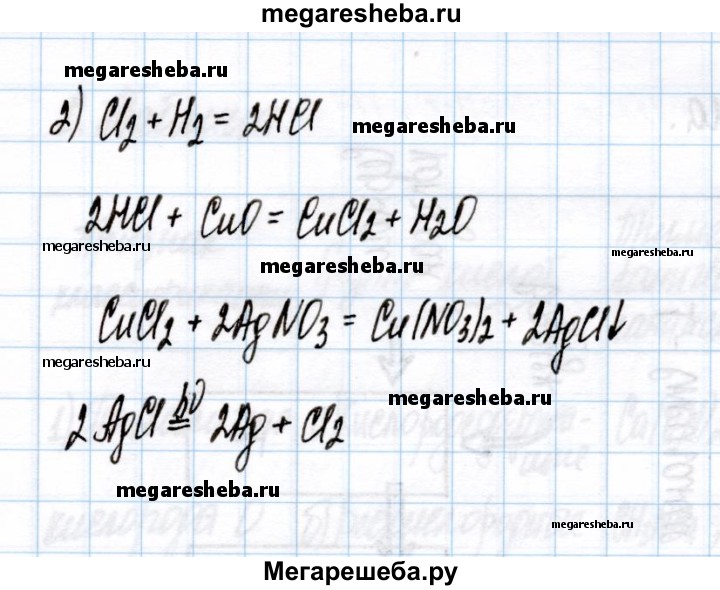 megaresheba.ru
megaresheba.ru
2) Cl₂ + H₂ = 2HCl
megaresheba.ru
2HCl + CuO = CuCl₂ + H₂O
megaresheba.ru
megaresheba.ru
megaresheba.ru
CuCl₂ + 2AgNO₃ = Cu(NO₃)₂ + 2AgCl↓
megaresheba.ru
megaresheba.ru
2AgCl = 2Ag + Cl₂
megaresheba.ru
megaresheba.ru
Мегарешеба.ру